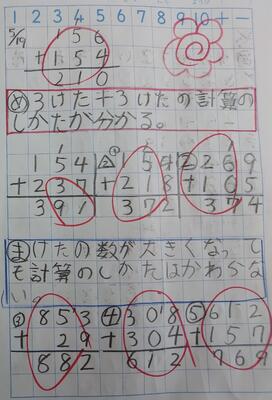 1 2 3 4 5 6 7 8 9 10 + −
5/19 156
+154
210
め 3けた+3けたの計算の
しかたが分かる。
154 ① 154 ② 269
+237 +218 +105
391 372 374
ま けたの数が大きくなって
も計算のしかたはかわらな
い。
③ 853 ④ 308 ⑤ 612
+ 29 +304 +157
882 612 769